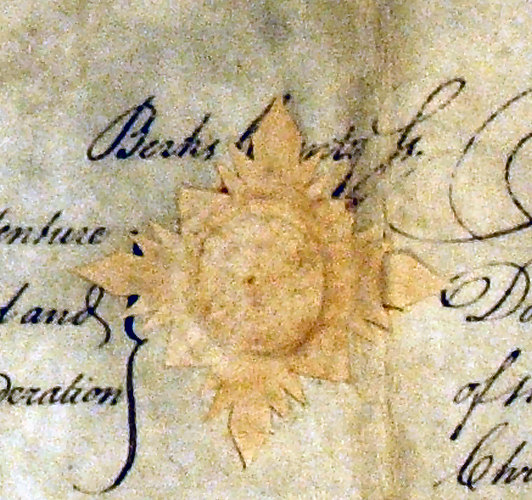 Berks County Ss.
enture
d and Do
deration of
Chr